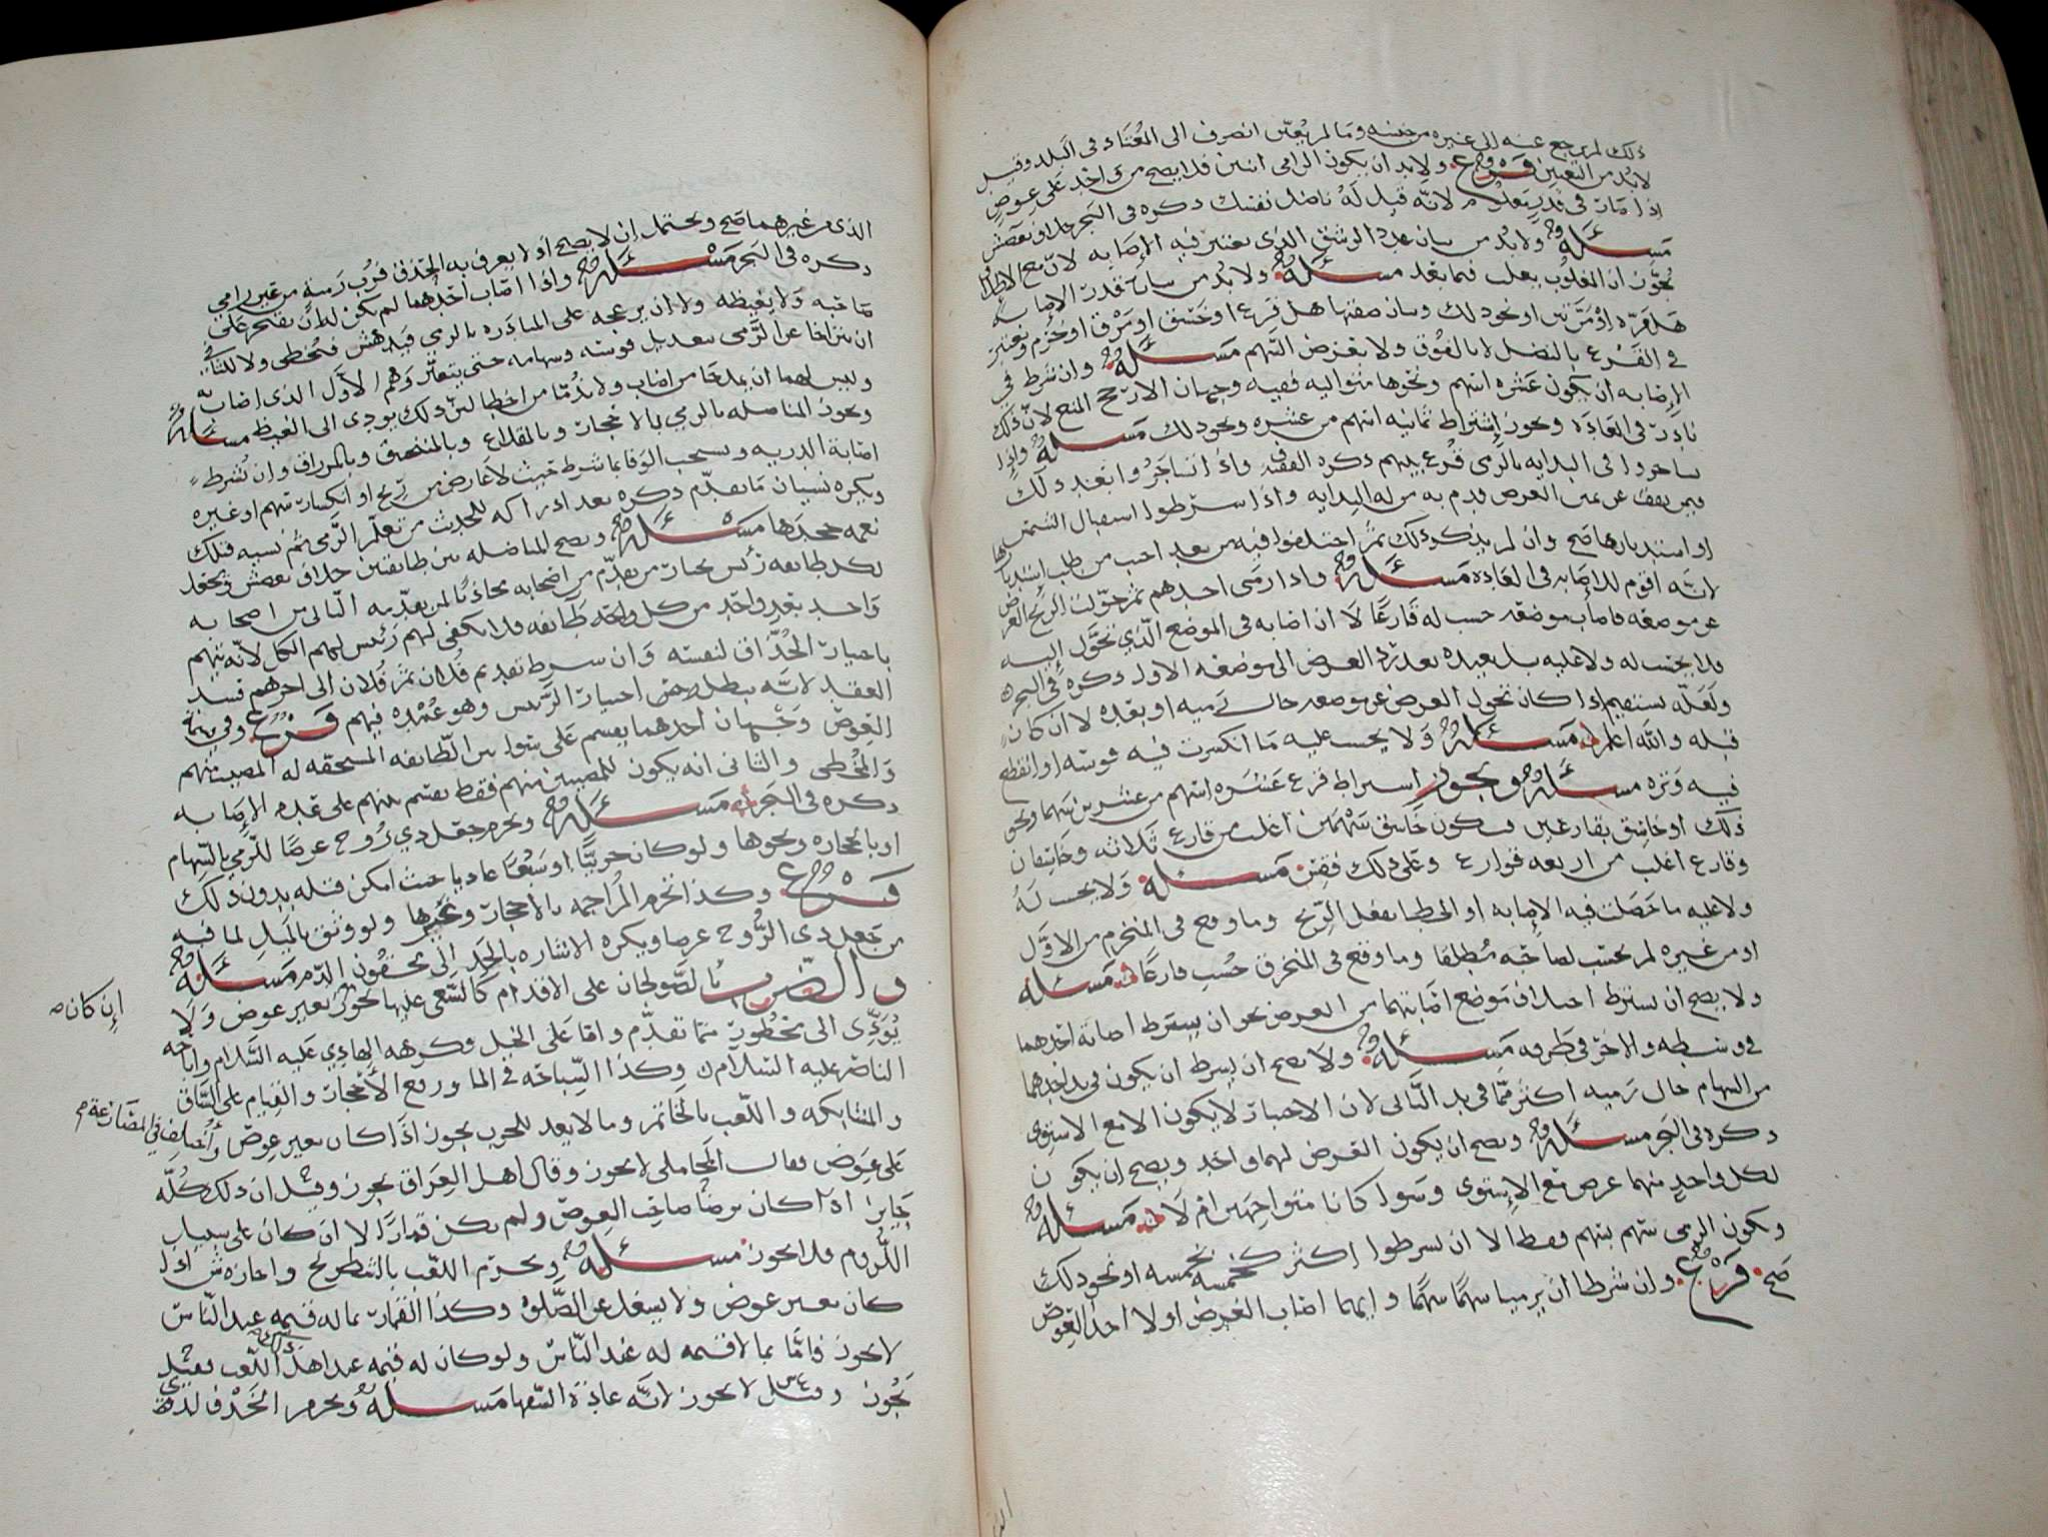 ذلك لم يرجع عنه الى غيره من جنسه وما لم يعين انصرف الى المعتاد في البلد وقيل
لا بد من التعيين فرع ولا بد ان يكون الرامي اثنين فلا يصح من واحد على عوض
اذا مات في قدر معلوم لانه قيل له ناضل نفسك ذكره في البحر
مسئلة ولا بد من بيان عدد الرشق الذي تعتبر فيه الاصابه لان مع
يجوز ان المغلوب يغلب فيما بعد مسئلة ولا بد من بيان قدر الاصابه
هل مره او مرتين او نحو ذلك وبيان صفتها هل قرع او خسق او مرق او خرم ويعتبر
في القرع بالنصل لا بالفوق ولا بعرض السهم مسئلة وان شرط في
الاصابه ان يكون عشره اسهم ونحوها متواليه ففيه وجهان الارجح المنع لان ذلك
نادر في العاده ويجوز اشتراط ثمانيه اسهم من عشره ونحو ذلك مسئلة واذا
تشاجروا في البدايه بالرمي قرع بينهم ذكره الفقيه ف واذا تشاجروا بعد ذلك
فيمن يقف عن يمين الغرض قدم به من له البدايه واذا شرطوا استقبال الشمس
او استدبارها صح وان لم يذكر ذلك ثم اختلفوا فيه من بعد احب من طلب استدبارها
لانه اقوم للاصابه في العاده مسئلة واذا رمى احدهم ثم حولت الريح الغرض
عن موضعه فاصاب موضعه حسب له قارعا لا ان اصابه في الموضع الذي تحول اليه
فلا يحسب له ولا عليه بل يعيده بعد رد الغرض الى موضعه الاول ذكره في البحر
ولعله يستقيم اذا كان تحول الغرض عن موضعه حال رميه او بعده لا ان كان
قبله والله اعلم مسئلة ولا يحسب عليه ما انكسرت فيه قوسه او انقطع
فيه وتره مسئلة ويجوز اشتراط قرع عشره اسهم من عشرين سهما ونحو
ذلك او خاسق بقارعين فيكون خاسق سهمين اغلب من قارع ثلاثه وخاسقان
وقارع اغلب من اربعه قوارع وعلى ذلك فقس مسئلة ولا يحسب له
ولا عليه ما حصلت فيه الاصابه او الخطا بفعل الريح وما وقع في المنخرم من الاول
او من غيره لم يحتسب لصاحبه مطلقا وما وقع في المنخرق حسب قارعا مسئلة
ولا يصح ان يشترط اختلاف موضع اصابتهما من الغرض نحو ان يشترط اصابة احدهما
في وسطه والاخر في طرفه مسئلة ولا يصح ان يشرط ان يكون في يد احدهما
من السهام حال رميه اكثر مما في يد الثاني لان الاختيار لا يكون الا مع الاستوى
ذكره في البحر مسئلة ويصح ان يكون الغرض لهما واحد ويصح ان يكون
لكل واحد منهما غرض مع الاستوى وسوا كانا متواجهين ام لا مسئلة
ويكون الرمي سهم بسهم فقط الا ان يشرطوا اكثر كخمسه بخمسه او نحو ذلك
صح فرع وان شرطا ان يرميا سهما سهما وايهما اصاب الغرض اولا اخذ العوض
الذي من غيرهما صح ويحتمل ان لا يصح اذ لا يعرف به الحذق فرب رمية من غير رامي
ذكره في البحر مسئلة واذا اصاب احدهما لم يكن له ان يفتخر على
صاحبه ولا يغيظه ولا ان يزعجه على المبادره بالرمي فيدهش فيخطي ولا للثاني
ان يتراخا عن الرمي بتعديل قوسه وسهامه حتى يتعثر وهم الاول الذي اصاب
وليس لهما ان يمدحا من اصاب ولا يذما من اخطا لان ذلك يودي الى الغيظ مسئلة
ويجوز المناضله بالرمي بالاحجار وبالمقلاع وبالمنجنيق وبالمزراق وان شرط
اصابة الدريه ويستحب الوفا بما شرط حيث لا عارض من ريح او انكسار سهم او غيره
ويكره نسيان ما يقدم ذكره بعد ادراكه للحديث من تعلم الرمي ثم نسيه فتلك
نعمه جحدها مسئلة ويصح المناضله بين طايفتين حذاق بعضهم ويجعل
لكل طايفه رئيس يختار من يقدم من اصحابه محاذيا لمن يقدمه الثاني من اصحابه
واحد بعد واحد من كل واحده طايفه فلا يكفي لهم رئيس لهم الكل لانه يتهم
باختيار الحذاق لنفسه وان شرط تقديم فلان ثم فلان الى اخرهم فسد
العقد لانه يبطل غرض اختيار الرئيس وهو عمده فيهم فرع وفي قسمة
العوض وجهان احدهما يقسم على سوا بين الطايفه المستحقه له المصيب منهم
والمخطي والثاني انه يكون للمصيبين منهم فقط يقسم بينهم على قدر الاصابه
ذكره في البحر مسئلة ويحرم جعل ذي روح غرضا للرمي بالسهام
او بالحجاره ونحوها ولو كان حربيا او سبعا عاديا حيث امكن قتله بدون ذلك
فرع وكذا تحرم المراجمه بالاحجار وغيرها ولو وثق بالميل لما فيه
من جعل ذي الروح غرضا ويكره الاشاره بالحد الى محقون الدم مسئلة
والضرب بالصولجان على الاقدام كالسعي عليها يجوز بغير عوض ولا
إن كان
يؤدي الى محظور مما تقدم واما على الخيل فكرهه الهادي عليه السلام واباحه
الناصر عليه السلام وكذا السباحه في الما ورفع الاحجار والقيام على الساق
والمشابكه واللعب بالخاتم وما لا يعد للحرب يجوز اذا كان بغير عوض واختلف في المصارعة
على عوض فقال المحاملي لا يجوز وقال اهل العراق يجوز وقيل ان ذلك كله
جايز اذا كان برضا صاحب العوض ولم يكن قمارا لا ان كان على سبيل
اللزوم فلا يجوز مسئلة ويحرم اللعب بالشطرنج واجازه ش اذا
كان بغير عوض ولا يشغل عن الصلوه وكذا القمار بما له قيمه عند الناس
لا يجوز فاما بما لا قيمه له عند الناس ولو كان له قيمه عند اهل اللعب فقيل
يجوز وقيل لا يجوز لانه عادة السفها مسئلة ويحرم الخذف